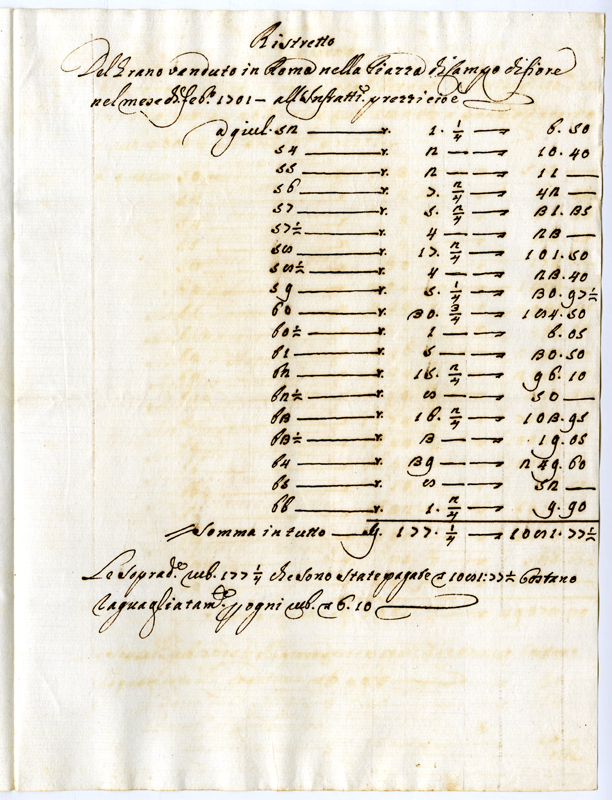 Ristretto
Del Grano vanduto in Roma nella Piazza di Campo di fiore
nel mese di feb.º 1701 — all'Infratti prezzi cioè
a giul. 52 — r. 1. 1/4 — 6. 50
54 — r. 2 — 10. 40
55 — r. 2 — 11 —
56 — r. 7. 2/4 — 42 —
57 — r. 5. 2/4 — 31. 35
57½ — r. 4 — 23 —
58 — r. 17. 2/4 — 101. 50
58½ — r. 4 — 23. 40
59 — r. 5. 1/4 — 30. 97½
60 — r. 30. 3/4 — 184. 50
60½ — r. 1 — 6. 05
61 — r. 5 — 30. 50
62 — r. 15. 2/4 — 96. 10
62½ — r. 8 — 50 —
63 — r. 16. 2/4 — 103. 95
63½ — r. 3 — 19. 05
64 — r. 39 — 249. 60
65 — r. 8 — 52 —
66 — r. 1. 2/4 — 9. 90
Somma in tutto — r. 177. 1/4 — 1081. 77½
Le soprad.e rub. 177 1/4 che sono state pagate a 1081:77½ costano
raguagliatam.e p ogni rub. a 6. 10